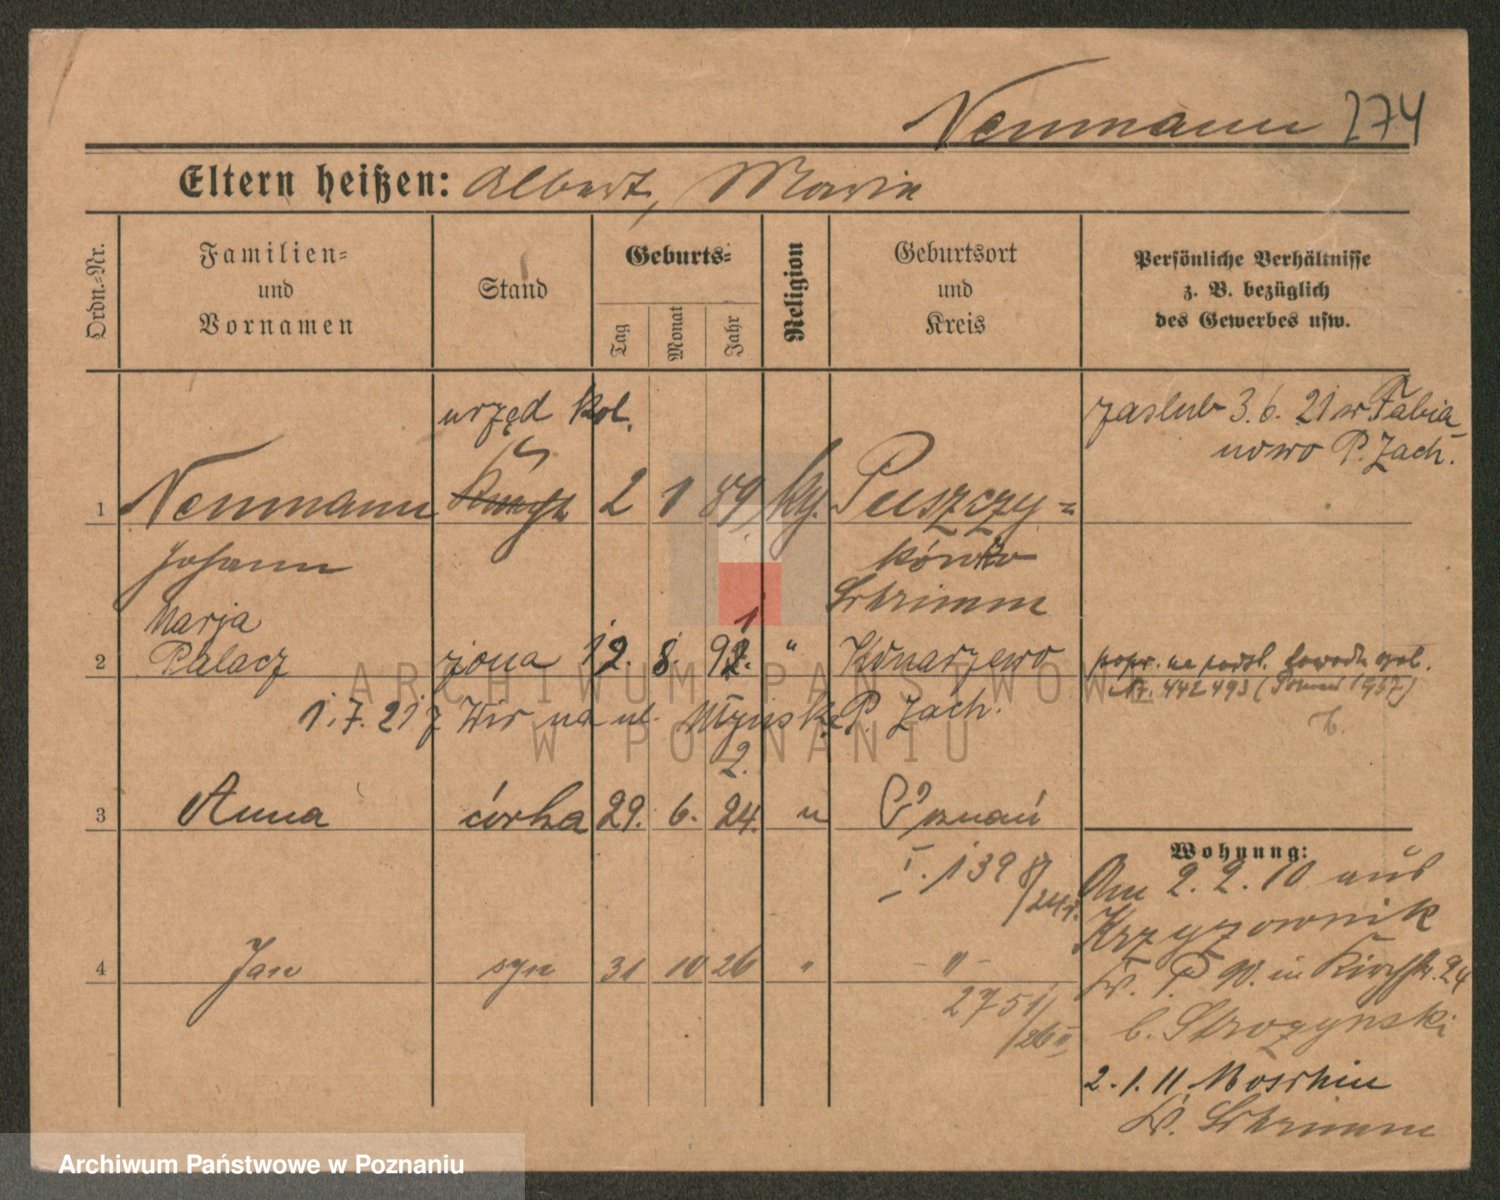 Neumann 274
Eltern heißen: Albert, Maria
Ordn.-Nr.
Familien-
und
Vornamen
Stand
Geburts-
Tag
Monat
Jahr
Religion
Geburtsort
und
Kreis
Persönliche Verhältnisse
z. B. bezüglich
des Gewerbes usw.
urzęd kol.
zaślub 3.6. 21 w Fabia
nowo P. Zach.
1 Neumann 2 1 89. kg. Puszczy-
Johann
kówko
Schrimm
Marja
2 Palacz żona 12. 8. 91. " Konarzewo
popr. na podst. dowodu
Nr. 442493
1.7. 21 z Wir na ul. Młyńska P. Zach.
2.
3 Anna córka 29. 6. 24. " Poznań
I. 139 8/24r.
Wohnung:
Am 2. 2. 10 aus
Krzyżownik
Kr. P. W. in Kirchstr. 24
b. Strozynski
4 Jan syn 31 10 26 " -"-
2751/26 II
2.1.11 Moschin
Kr. Schrimm
ARCHIWUM PAŃSTWOWE
W POZNANIU
Archiwum Państwowe w Poznaniu